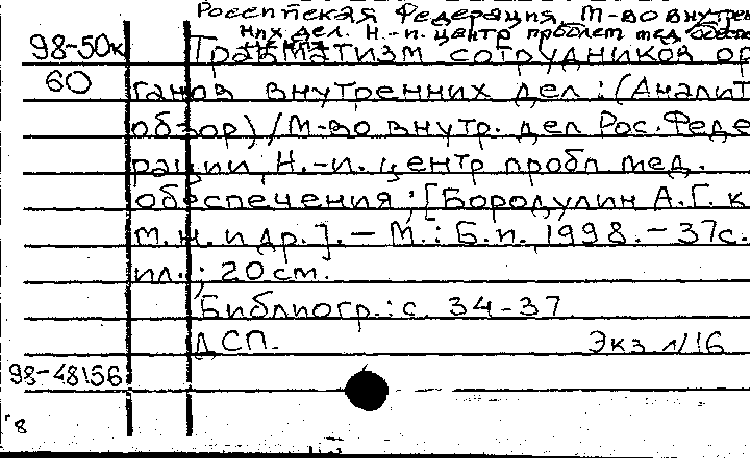 Российская Федерация, М-во внутрен
них дел. Н.-и. центр проблем мед. обеспе
98-50к Травматизм сотрудников ор
60 ганов внутренних дел : (Аналит.
обзор) / М-во внутр. дел Рос. Феде
рации, Н.-и. центр пробл мед.
обеспечения ; [Бородулин А.Г. к.
м.н. и др.]. - М. : Б.и., 1998. - 37с.
ил. ; 20 см.
Библиогр.: с. 34-37
ДСП. Экз. N 16
98-48156
8